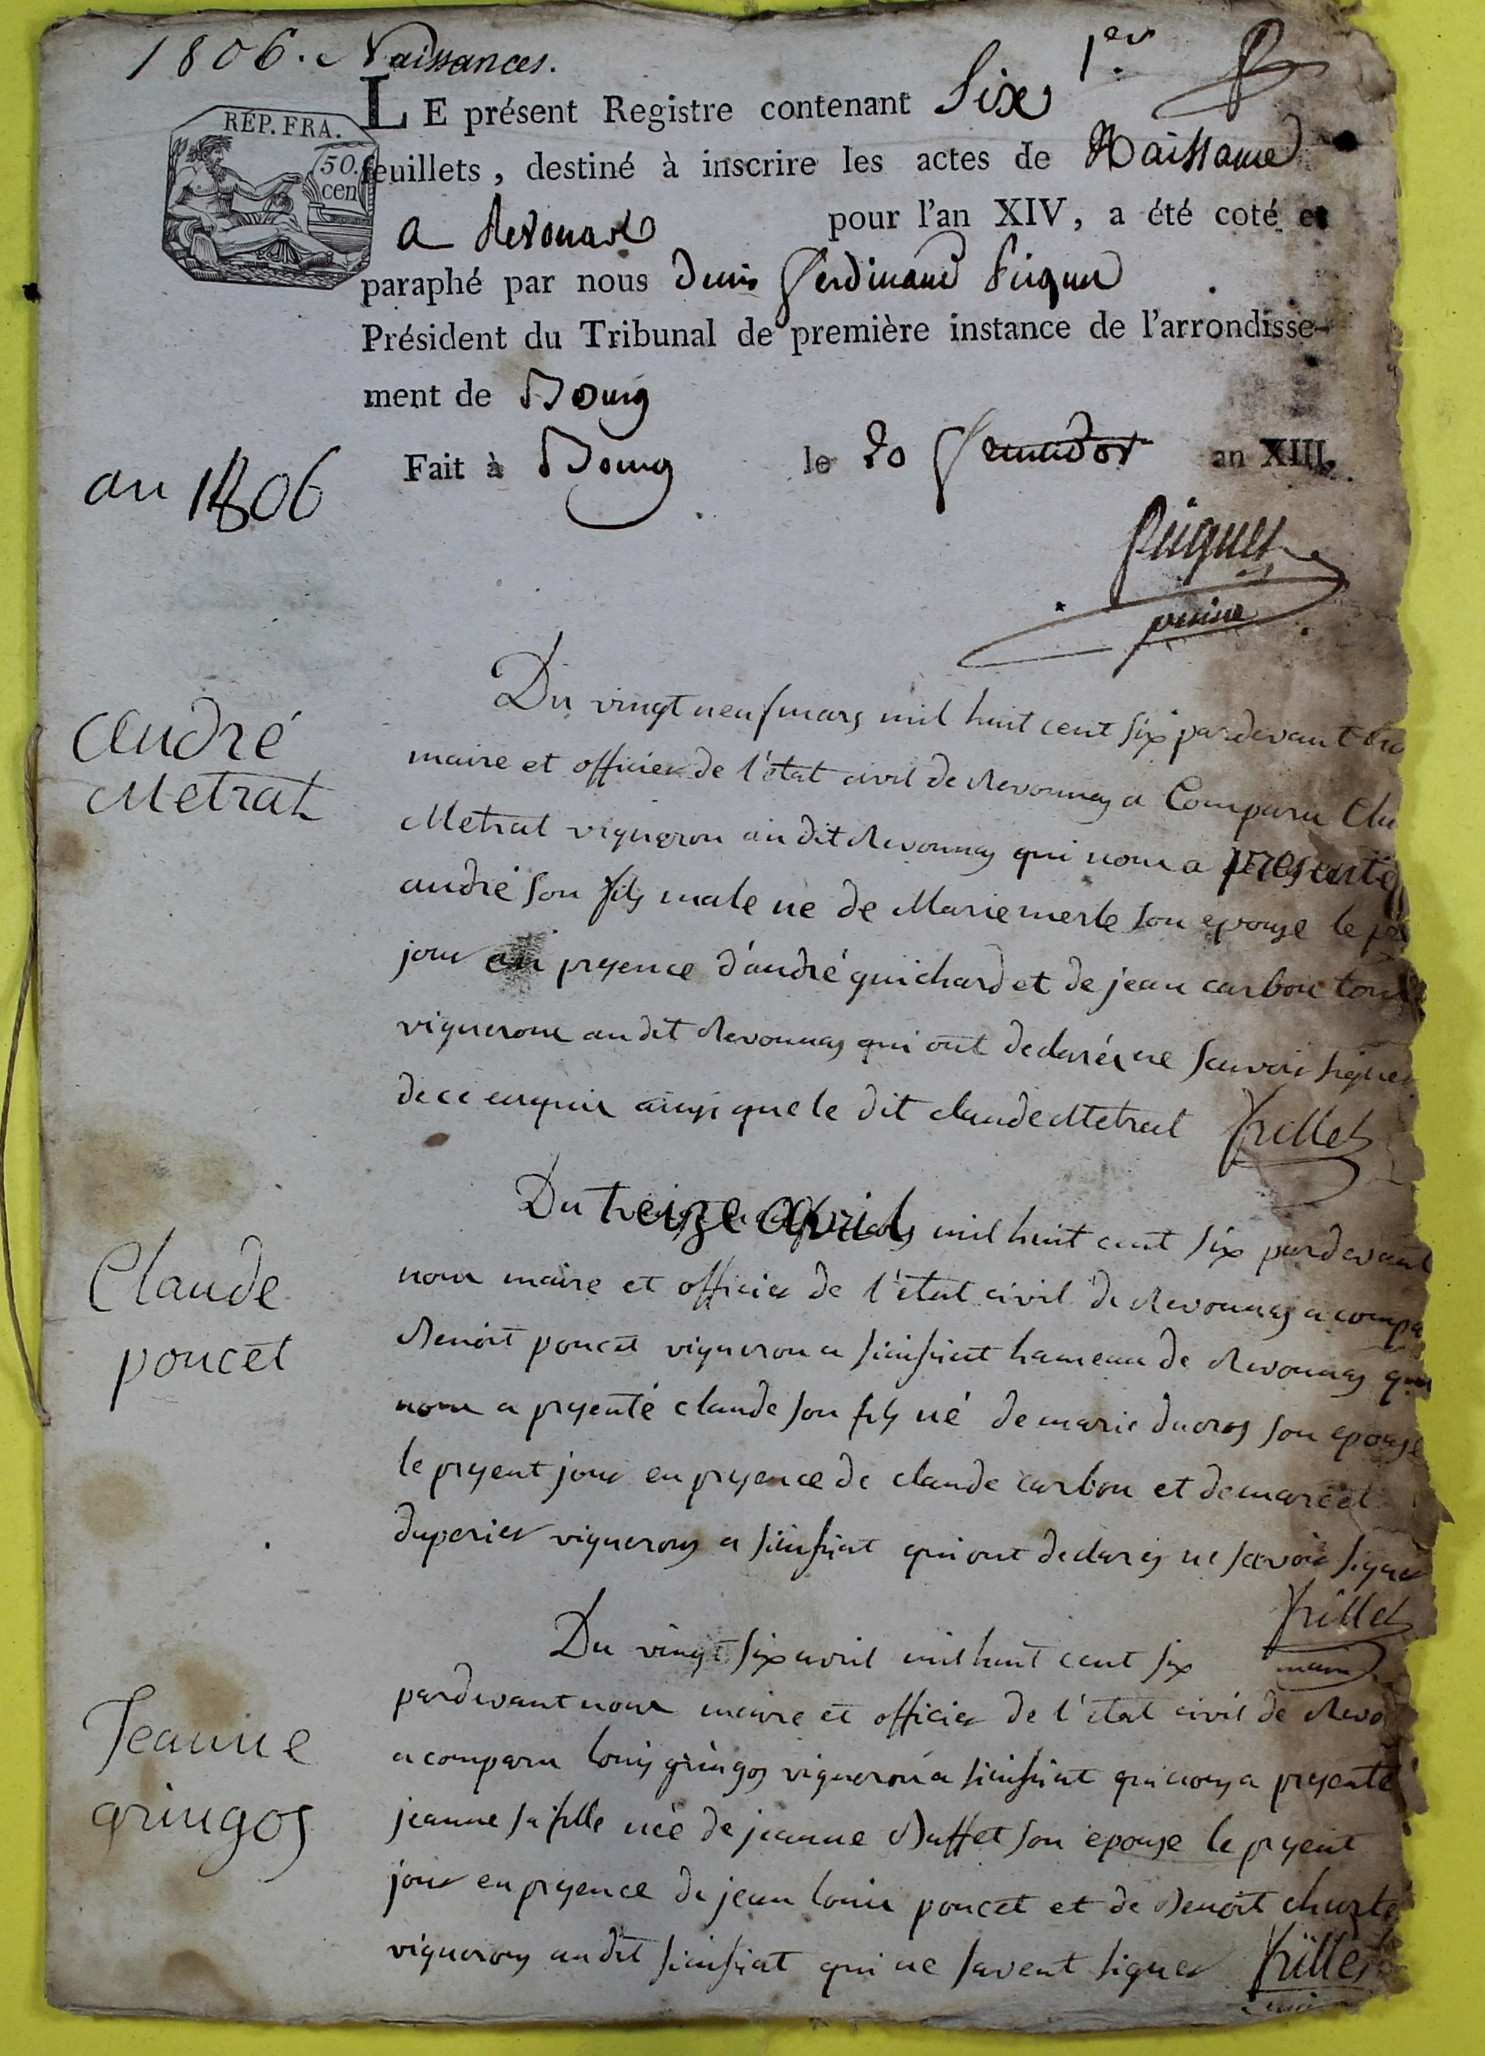 1806. Naissances.
1er
RÉP. FRA.
50.
cen
LE présent Registre contenant Six
feuillets, destiné à inscrire les actes de Naissance
a Revonas pour l'an XIV, a été coté et
paraphé par nous Denis Ferdinand Picquet
Président du Tribunal de première instance de l'arrondisse-
ment de Bourg
an 1806
Fait à Bourg le 20 fructidor an XIII.
Picquet
André
Metrat
Du vingt neuf mars mil huit cent six pardevant
maire et officier de l'état civil de Revonnas a Comparu Cla
Metrat vigneron au dit Revonnas qui nous a presenté
andré son fils male né de Marie merle son epouse le
jour en presence d'andré guichard et de jean carbon tous
vignerons au dit Revonnas qui ont declarés ne scavoir signer
de ce enquis ainsi que le dit claude Metrat
Claude
poucet
Du treize avril mil huit cent six pardevant
nous maire et officier de l'état civil de Revonnas a compa
Benoit poucet vigneron a sinsiat hameau de Revonnas qui
nous a presenté claude son fils né de marie ducros son epouse
le present jour en presence de claude carbon et de marcel
duperier vignerons a sinsiat qui ont declarés ne scavoir signer
maire
Jeanne
gringos
Du vingt six avril mil huit cent six
pardevant nous maire et officier de l'état civil de Revo
a comparu louis gringos vigneron a sinsiat qui nous a presenté
jeanne sa fille née de jeanne Buffet son epouse le present
jour en presence de jean louis poucet et de Benoit
vignerons au dit sinsiat qui ne savent signer